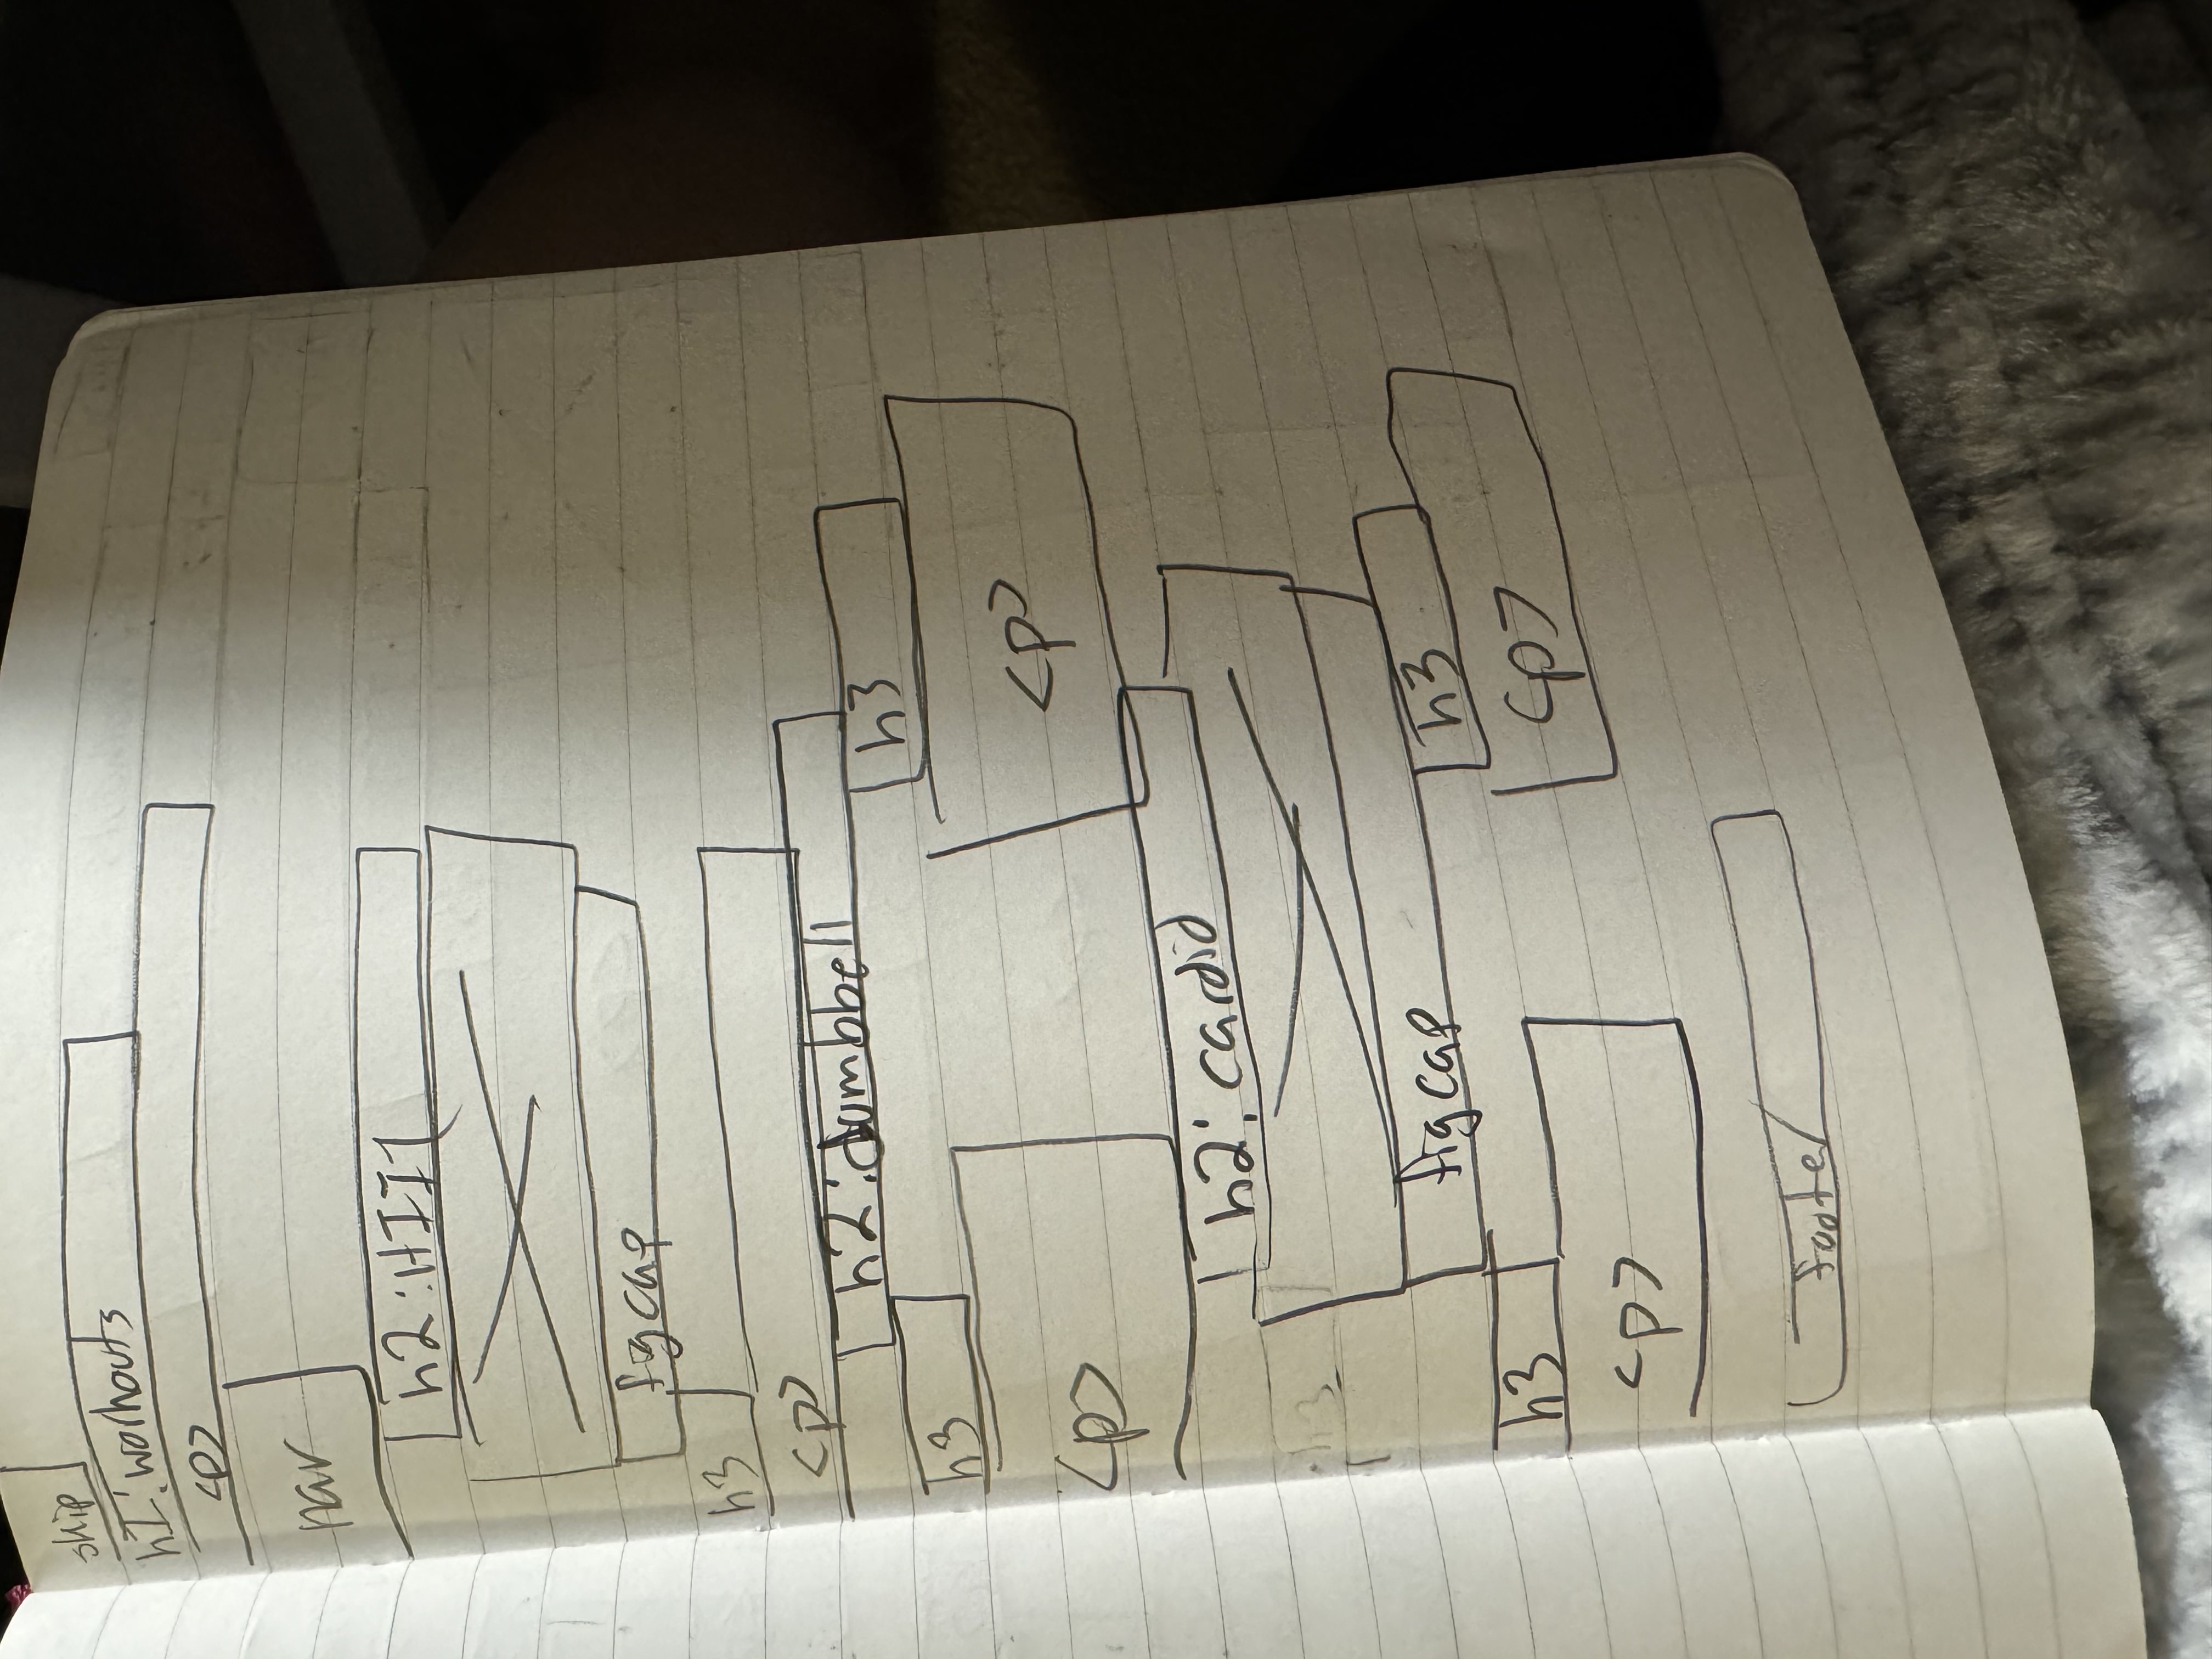 skip
h1: workouts
<p>
nav
h2: HIIT
figcap
h3
<p>
h2: dumbbell
h3
h3
<p>
<p>
h2: cardio
h3
figcap
h3
h3
<p>
<p>
footer